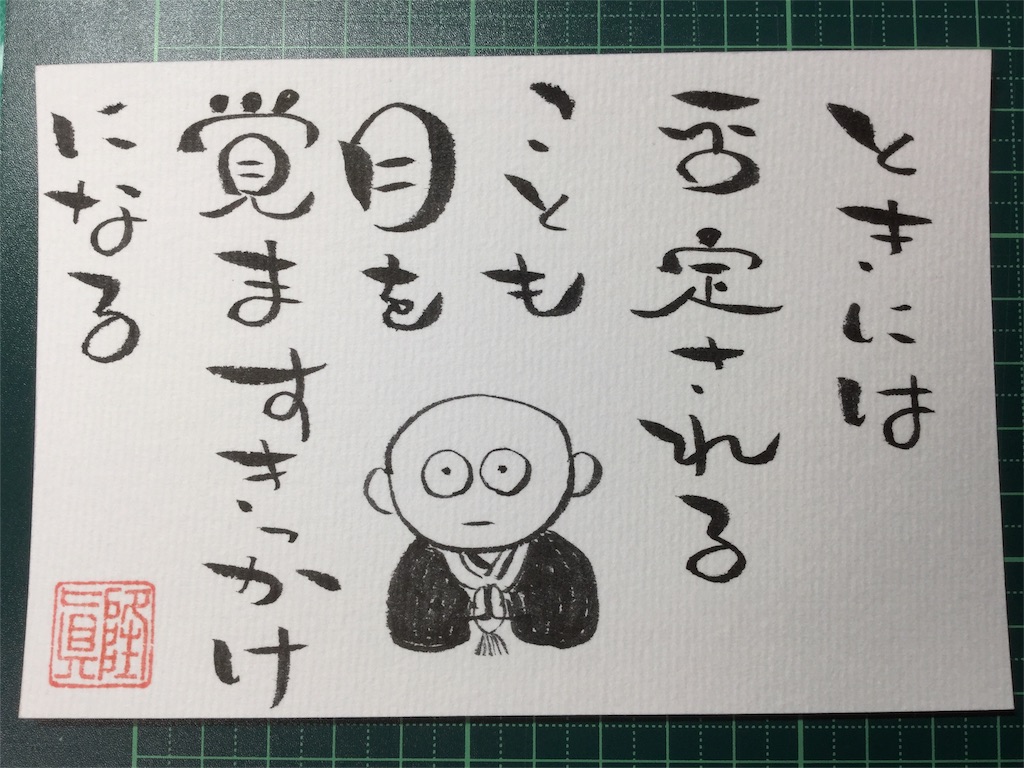 ときには
否定される
ことも
目を
覚ますきっかけ
になる